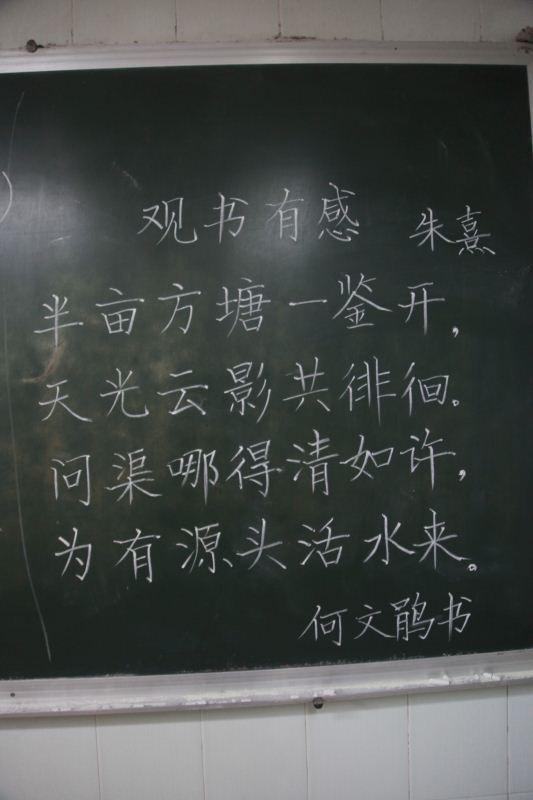 观书有感 朱熹
半亩方塘一鉴开，
天光云影共徘徊。
问渠哪得清如许，
为有源头活水来。
何文鹃书